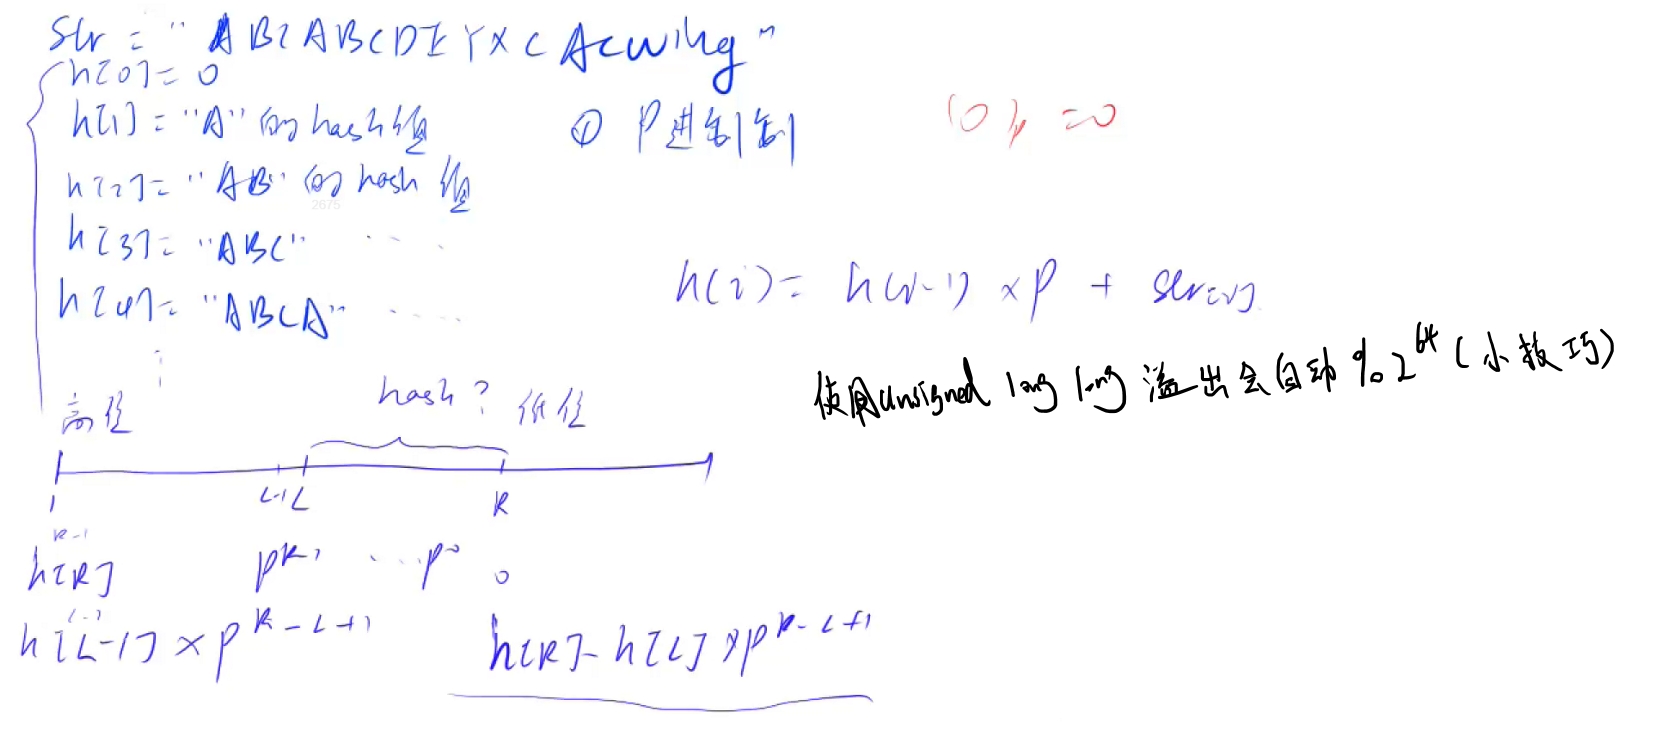 str = "ABCABCDEYXCAcwing"
h[0] = 0
h[1] = "A" 的 hash值
① P进制制
(0)p = 0
h[2] = "AB" 的 hash 值
2675
h[3] = "ABC" ......
h(i) = h(i-1) × P + str[i]
h[4] = "ABCA" ......
使用unsigned long long 溢出会自动 % 2^64 (小技巧)
⋮
hash?
高位 低位
1 L-1 L R
R-1
h[R] p^R-1 ... p^0 0
L-2
h[L-1] × p^R-L+1
h[R] - h[L] × p^R-L+1